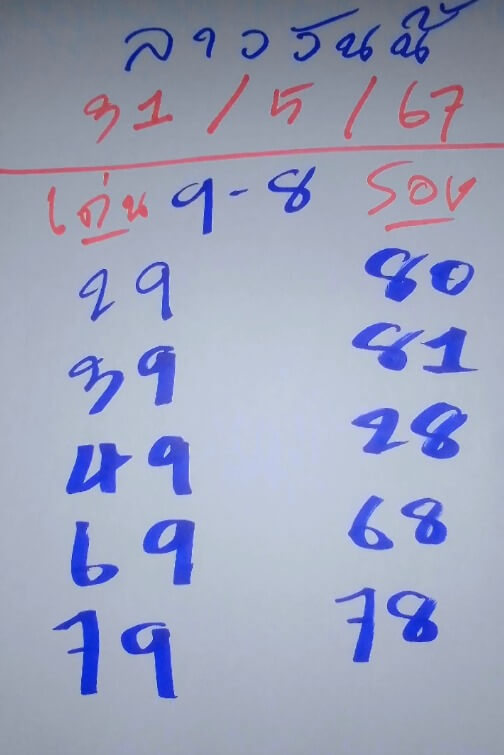 ลาววันนี้
31/5/67
เด่น 9-8 รอง
29 80
39 81
49 28
69 68
79 78